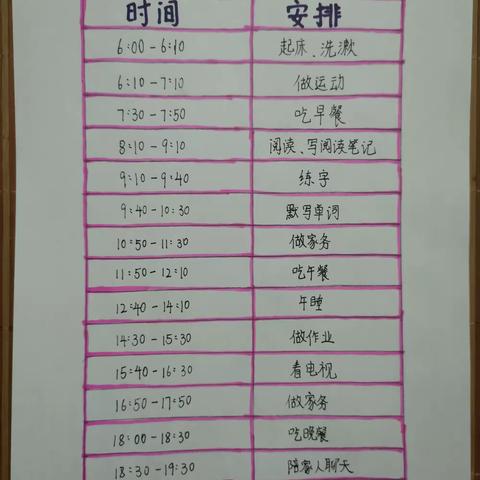 时间 安排
6:00-6:10 起床、洗漱
6:10-7:10 做运动
7:30-7:50 吃早餐
8:10-9:10 阅读、写阅读笔记
9:10-9:40 练字
9:40-10:30 默写单词
10:50-11:30 做家务
11:50-12:10 吃午餐
12:40-14:10 午睡
14:30-15:30 做作业
15:40-16:30 看电视
16:50-17:50 做家务
18:00-18:30 吃晚餐
18:30-19:30 陪家人聊天